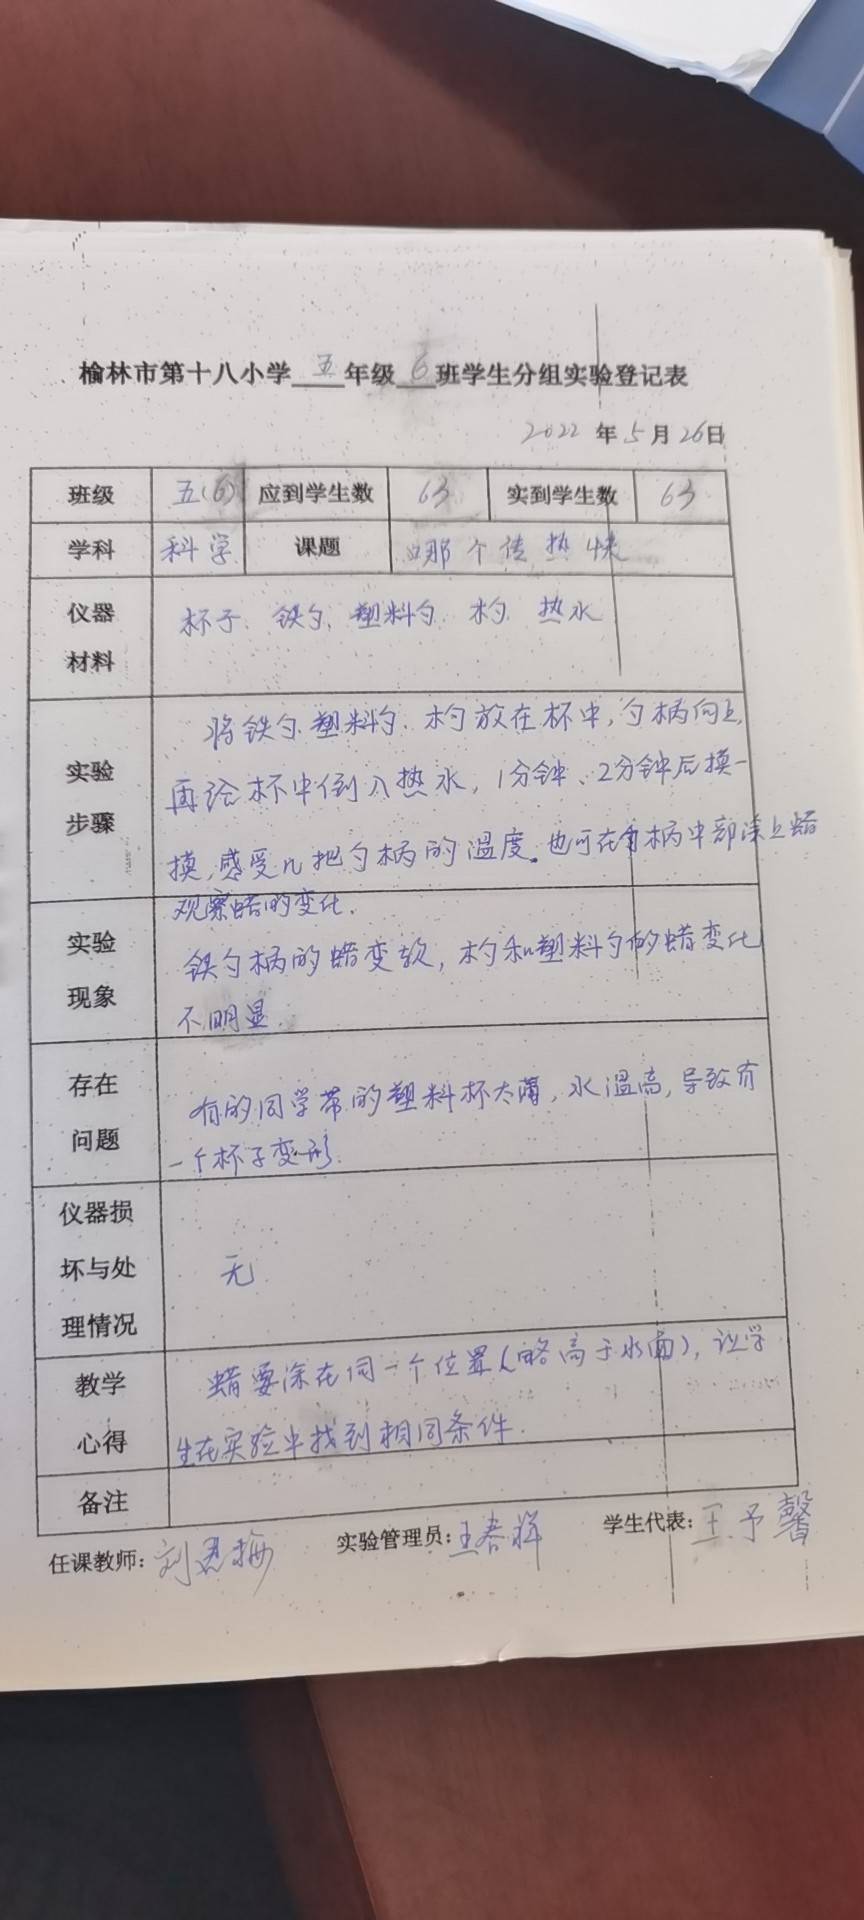 榆林市第十八小学 五 年级 6 班学生分组实验登记表
2022 年 5 月 26 日
班级 五(6) 应到学生数 63 实到学生数 63
学科 科学 课题 哪个传热快
仪器
材料
杯子、铁勺、塑料勺、木勺、热水
实验
步骤
将铁勺、塑料勺、木勺放在杯中,勺柄向上,
再给杯中倒入热水,1分钟、2分钟后摸一
摸,感受几把勺柄的温度。也可在勺柄中部涂上蜡
观察蜡的变化.
实验
现象
铁勺柄的蜡变软,木勺和塑料勺的蜡变化
不明显.
存在
问题
有的同学带的塑料杯太薄,水温高,导致有
一个杯子变形.
仪器损
坏与处
理情况
无
教学
心得
蜡要涂在同一个位置(略高于水面),让学
生在实验中找到相同条件.
备注
任课教师: 刘 梅 实验管理员: 王春祥 学生代表: 王予馨